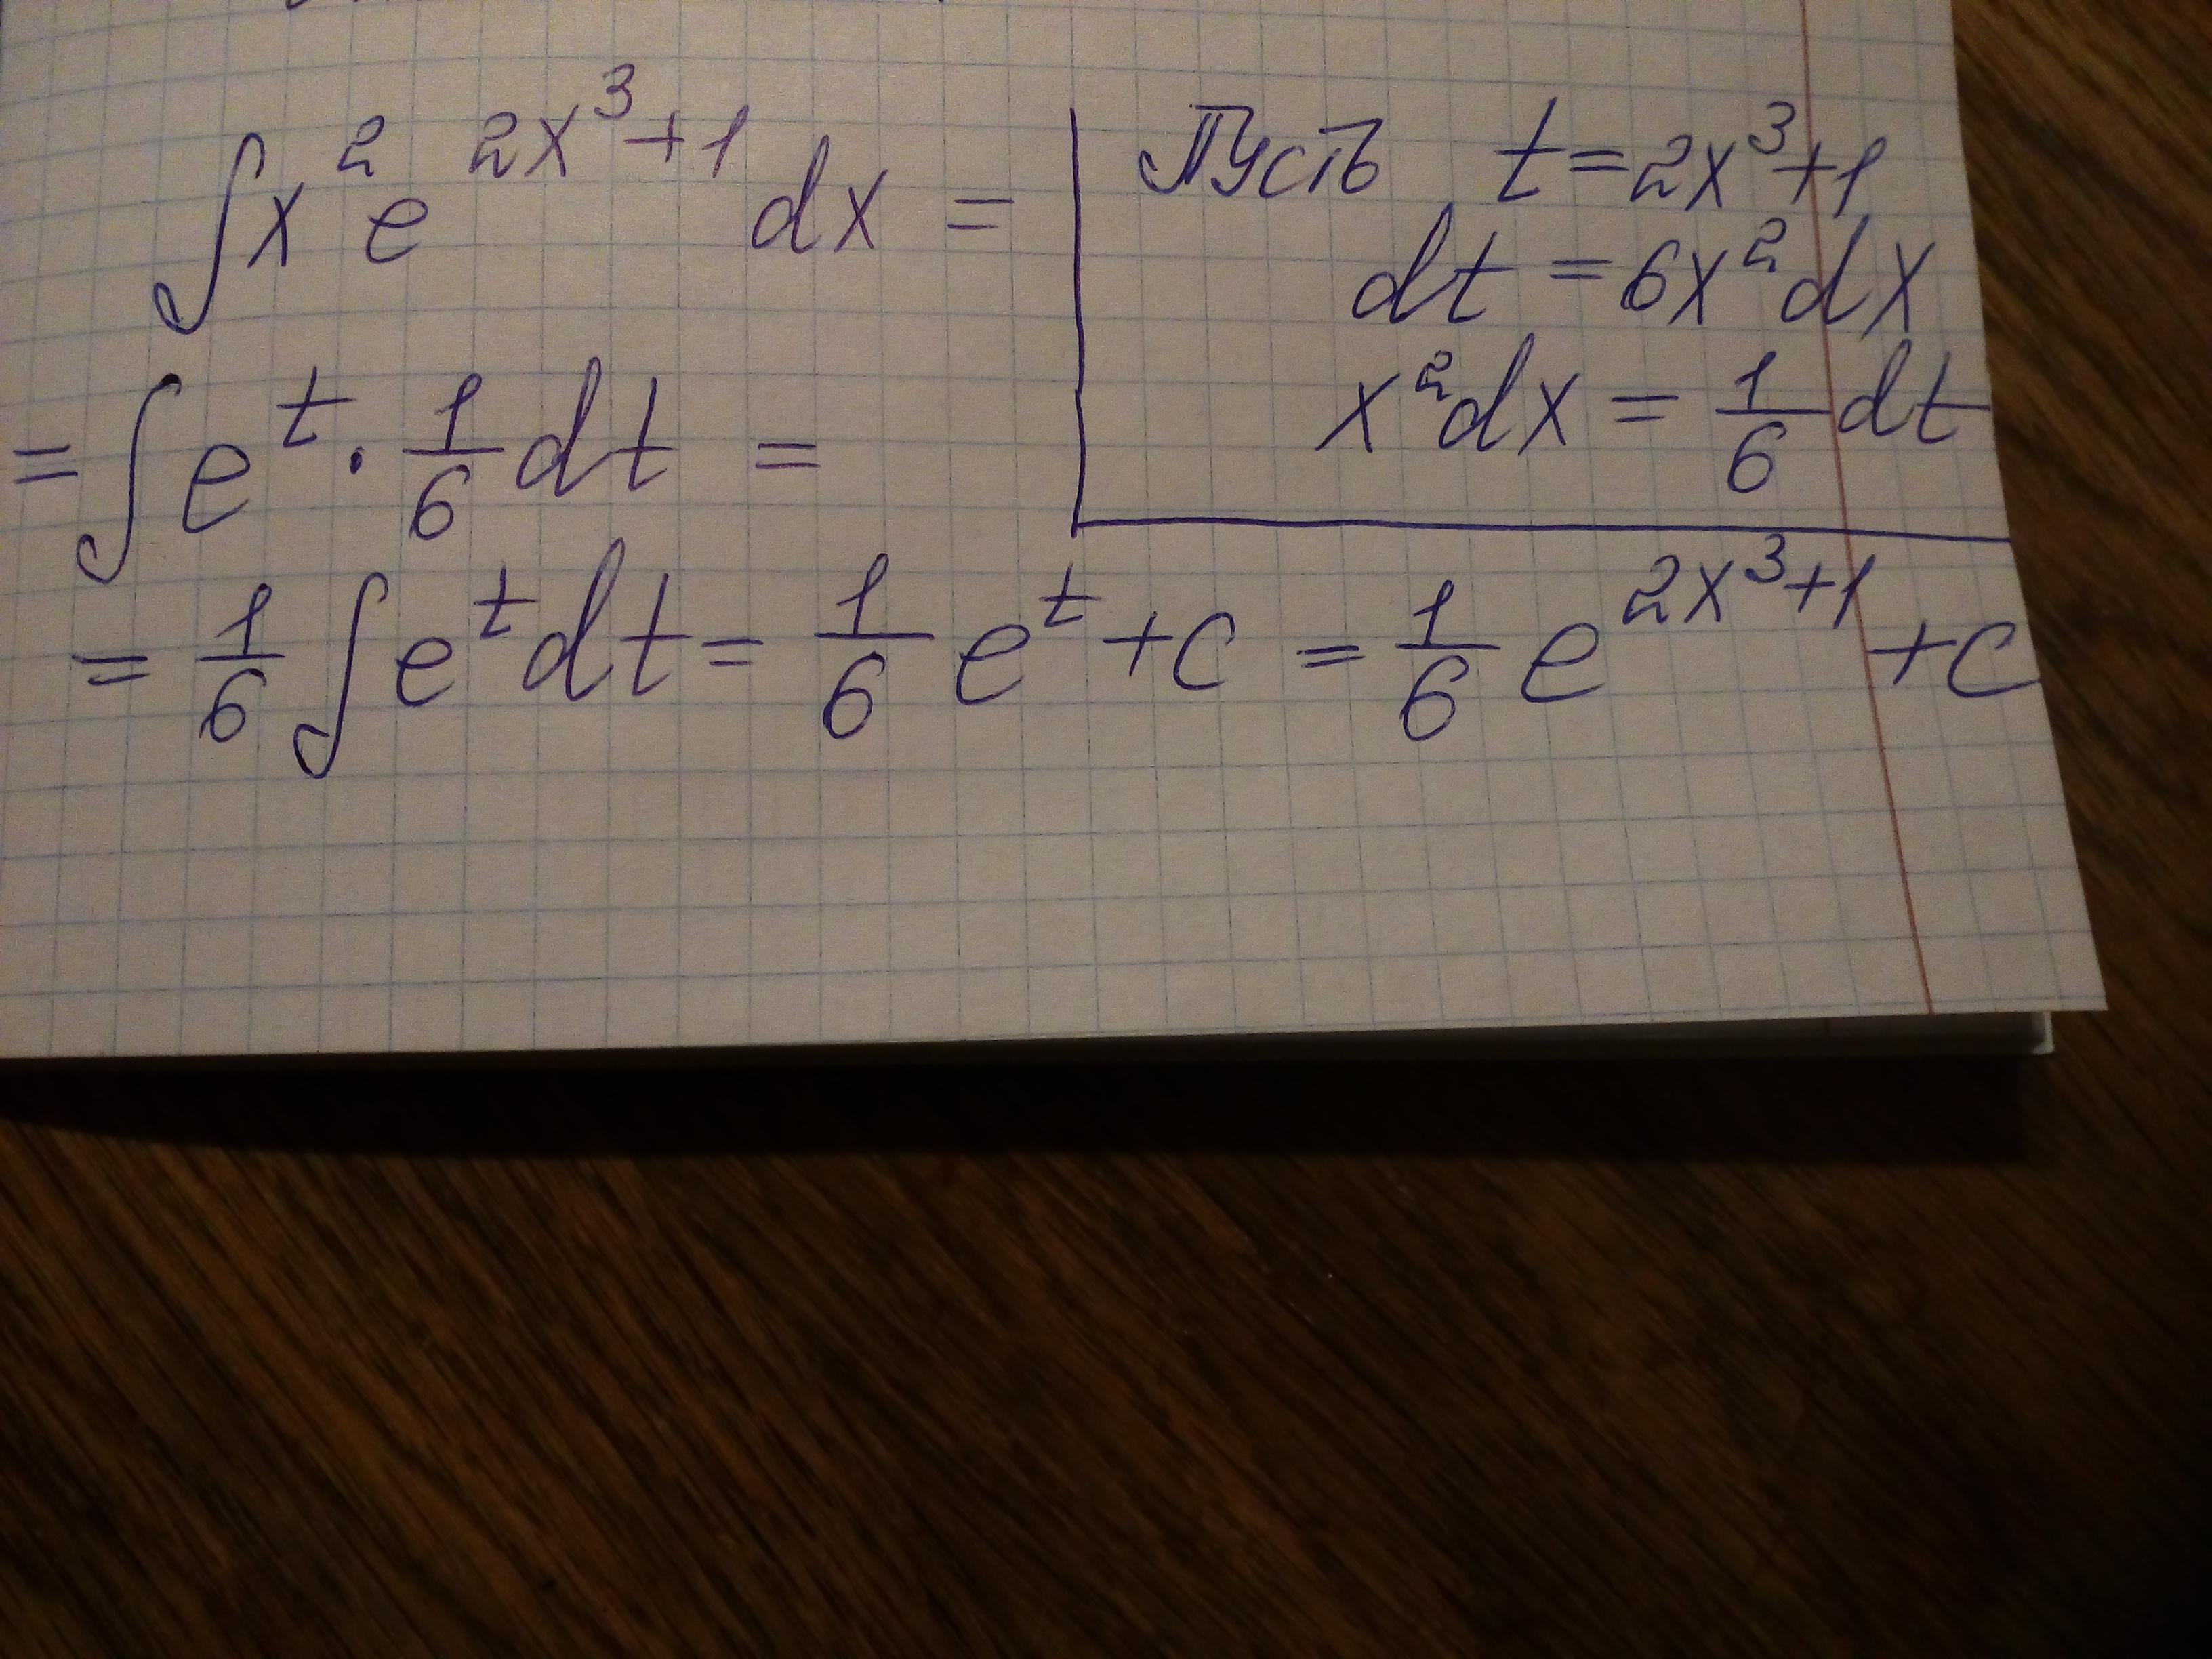 ∫x²e^{2x³+1}dx =
Пусть t=2x³+1
dt=6x²dx
x²dx = \frac{1}{6}dt
=∫e^t·\frac{1}{6}dt =
= \frac{1}{6}∫e^tdt= \frac{1}{6}e^t+c = \frac{1}{6}e^{2x³+1}+c